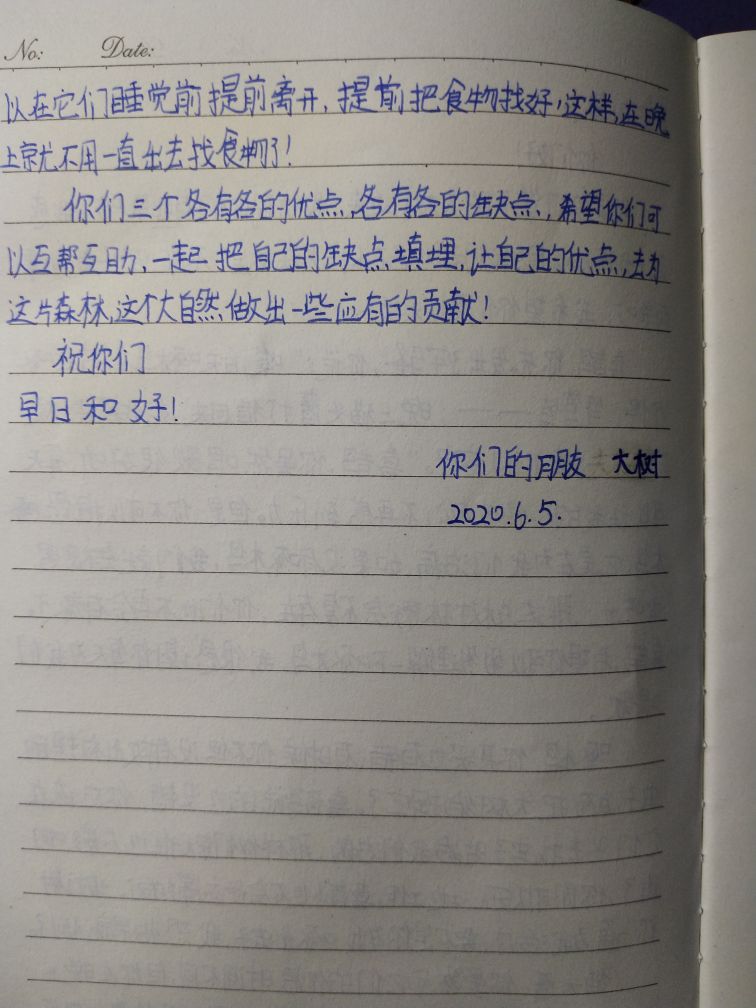 No:    Date:
以在它们睡觉前提前离开，提前把食物找好，这样，在晚
上就不用一直出去找食物了！
你们三个各有各的优点，各有各的缺点，希望你们可
以互帮互助，一起把自己的缺点填埋，让自己的优点，去为
这片森林，这个大自然做出一些应有的贡献！
祝你们
早日和好！
你们的朋友 大树
2020.6.5.